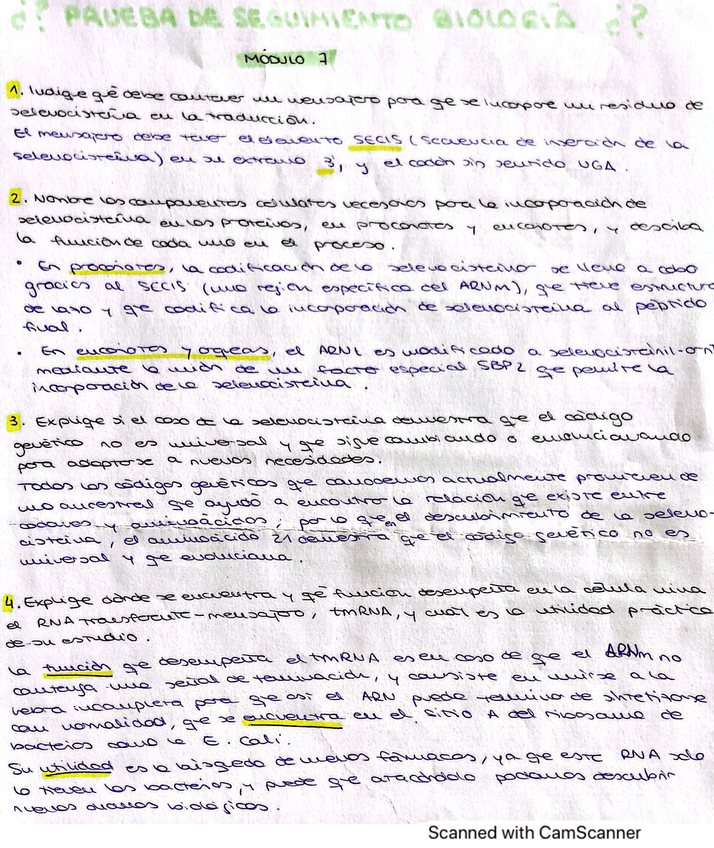 ¿? PRUEBA DE SEGUIMIENTO BIOLOGÍA ¿?
MÓDULO 7
1. Indiqe qé debe contener un mensajero para qe se incorpore un residuo de
selenocisteína en la traducción.
El mensajero debe tener el elemento SECIS (secuencia de inserción de la
selenocisteína) en su extremo 3', y el codón sin sentido UGA.
2. Nombre los componentes celulares necesarios para la incorporación de
selenocisteína en las proteínas, en procariotas y eucariotas, y describa
la función de cada uno en el proceso.
• En procariotas, la codificación de la selenocisteína se lleva a cabo
gracias al SECIS (una región específica del ARNm), qe tiene estructura
de lazo y qe codifica la incorporación de selenocisteína al péptido
final.
• En eucariotas y arqeas, el ARNt es modificado a selenocisteinil-
mediante la unión de un factor especial SBP2 qe permite la
incorporación de la selenocisteína.
3. Expliqe si el caso de la selenocisteína demuestra qe el código
genético no es universal y qe sigue cambiando o evolucionando
para adaptarse a nuevas necesidades.
Todos los códigos genéticos qe conocemos actualmente provienen de
uno ancestral qe ayudó a encontrar la relación qe existe entre
codones y aminoácidos, por lo qe en el descubrimiento de la seleno-
cisteína, el aminoácido 21 demuestra qe el código genético no es
universal y qe evoluciona.
4. Expliqe dónde se encuentra y qé función desempeña en la célula viva
el RNA transferente-mensajero, tmRNA, y cuál es la utilidad práctica
de su estudio.
La función qe desempeña el tmRNA es en caso de qe el ARNm no
contenga una señal de terminación, y consiste en unirse a la
hebra incompleta para qe así el ARN pueda terminar de sintetizarse
con normalidad, qe se encuentra en el sitio A del ribosoma de
bacterias como la E. Coli.
Su utilidad es la búsqeda de nuevos fármacos, ya qe este RNA solo
lo tienen las bacterias, y puede qe atacándolo podamos descubrir
nuevas dianas biológicas.
Scanned with CamScanner